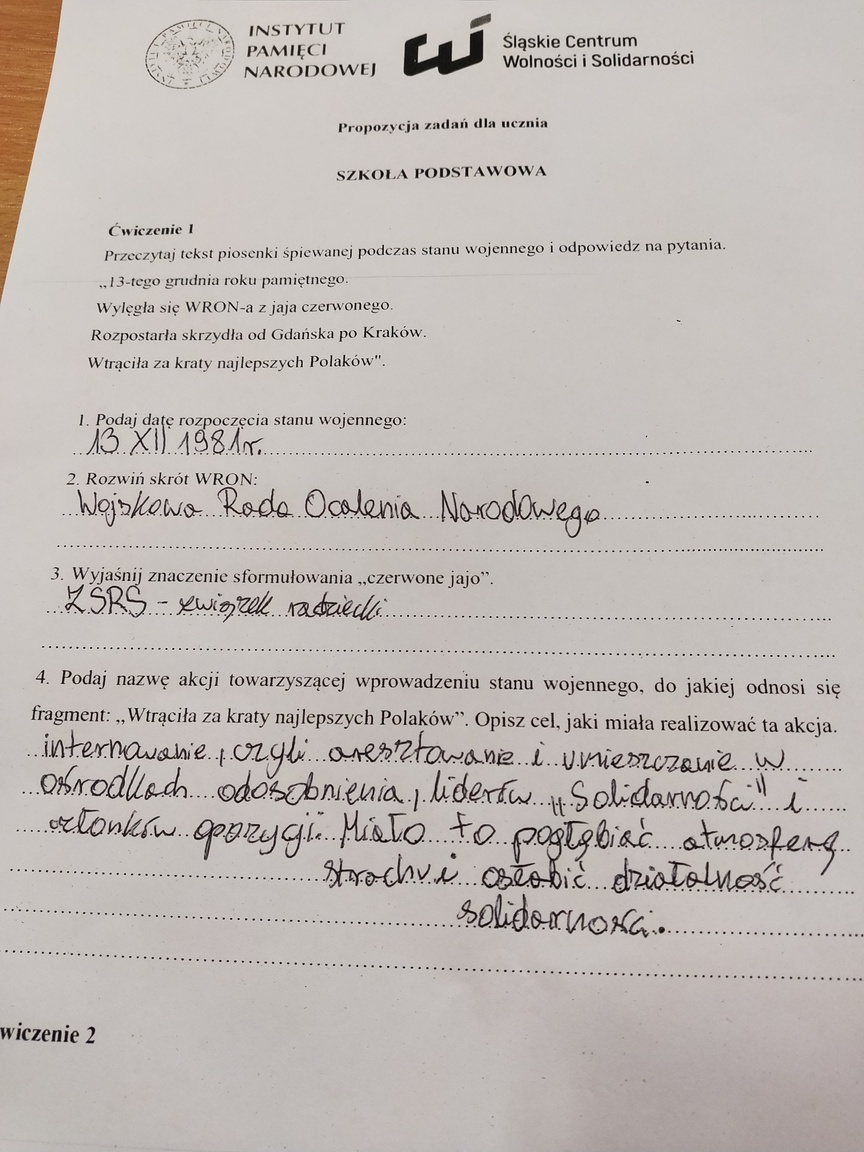 INSTYTUT
PAMIĘCI
NARODOWEJ
Śląskie Centrum
Wolności i Solidarności
Propozycja zadań dla ucznia
SZKOŁA PODSTAWOWA
Ćwiczenie 1
Przeczytaj tekst piosenki śpiewanej podczas stanu wojennego i odpowiedz na pytania.
„13-tego grudnia roku pamiętnego.
Wylęgła się WRON-a z jaja czerwonego.
Rozpostarła skrzydła od Gdańska po Kraków.
Wtrąciła za kraty najlepszych Polaków".
1. Podaj datę rozpoczęcia stanu wojennego:
13 XII 1981r.
2. Rozwiń skrót WRON:
Wojskowa Rada Ocalenia Narodowego
3. Wyjaśnij znaczenie sformułowania „czerwone jajo”.
ZSRS - związek radziecki
4. Podaj nazwę akcji towarzyszącej wprowadzeniu stanu wojennego, do jakiej odnosi się
fragment: „Wtrąciła za kraty najlepszych Polaków”. Opisz cel, jaki miała realizować ta akcja.
internowanie, czyli aresztowanie i umieszczanie w
ośrodkach odosobnienia, liderów „Solidarności" i
członków opozycji. Miało to pogłębiać atmosferę
strachu i osłabić działalność
solidarności.
wiczenie 2